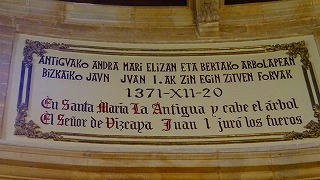 ANTIGVAKO ANDRA MARI ELIZAN ETA BERTAKO ARBOLAPEAN
BIZKAIKO JAVN JVAN 1.AK ZIN EGIN ZITVEN FORVAK
1371-XII-20
En Santa Maria La Antigua y cabe el árbol
El Señor de Vizcaya Juan 1 juró los fueros